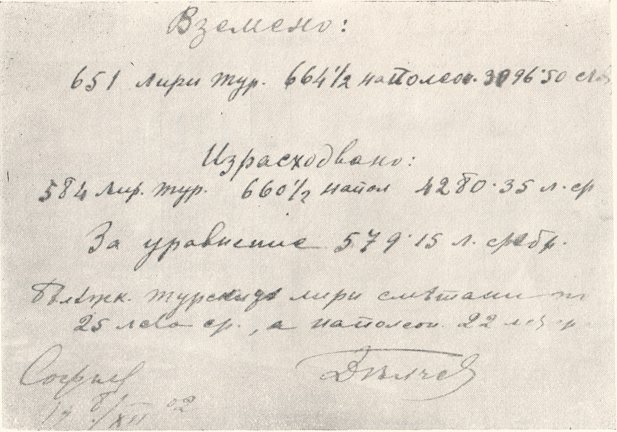 Вземено:
651 лири тур. 664½ наполеон. 3096·50 сл
Израсходвано:
584 лир. тур. 660½ напол 4280·35 л. ср
За уравнение 579·15 л. сребр.
Бѣлѣжк. турскитѣ лири смѣтани по
25 лева ср., а наполеон. 22 лев ср.
София
8/XII 02
Дѣлчев